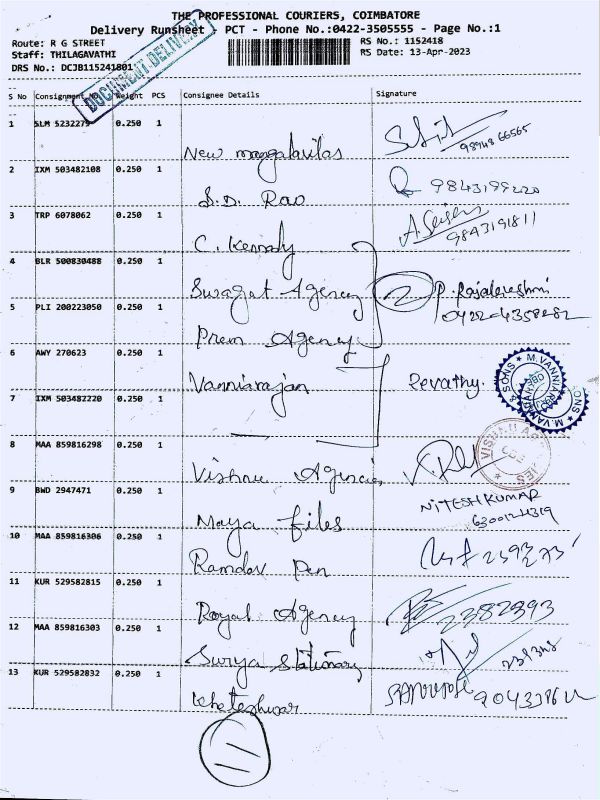 THE PROFESSIONAL COURIERS, COIMBATORE
Delivery Runsheet - PCT - Phone No.:0422-3505555 - Page No.:1
Route: R G STREET
Staff: THILAGAVATHI
DRS No.: DCJB115241801
RS No.: 1152418
RS Date: 13-Apr-2023
DOCUMENT DELIVERY
S No Consignment No Weight PCS Consignee Details Signature
1 SLM 5232275 0.250 1
New mangalavilas 98948 66565
2 IXM 503482108 0.250 1
S.D. Rao 9843199220
3 TRP 6078062 0.250 1
C. Kennady 9843191811
4 BLR 500830488 0.250 1
Swagat Agency 2 P. Rajalakshmi
0422-4358282
5 PLI 200223050 0.250 1
Prem Agency
6 AWY 270623 0.250 1
Vanniarajan Revathy.
M.VANNIARAJ & SONS
7 IXM 503482220 0.250 1
8 MAA 859816298 0.250 1
Vishnu Agencies
VISHNU AGENCIES CBE
9 BWD 2947471 0.250 1
Maya files NITESHKUMAR
10 MAA 859816306 0.250 1
Ramdev Pen
11 KUR 529582815 0.250 1
Royal Agency 2382393
12 MAA 859816303 0.250 1
Surya Stationary
13 KUR 529582832 0.250 1
Kheteshwar